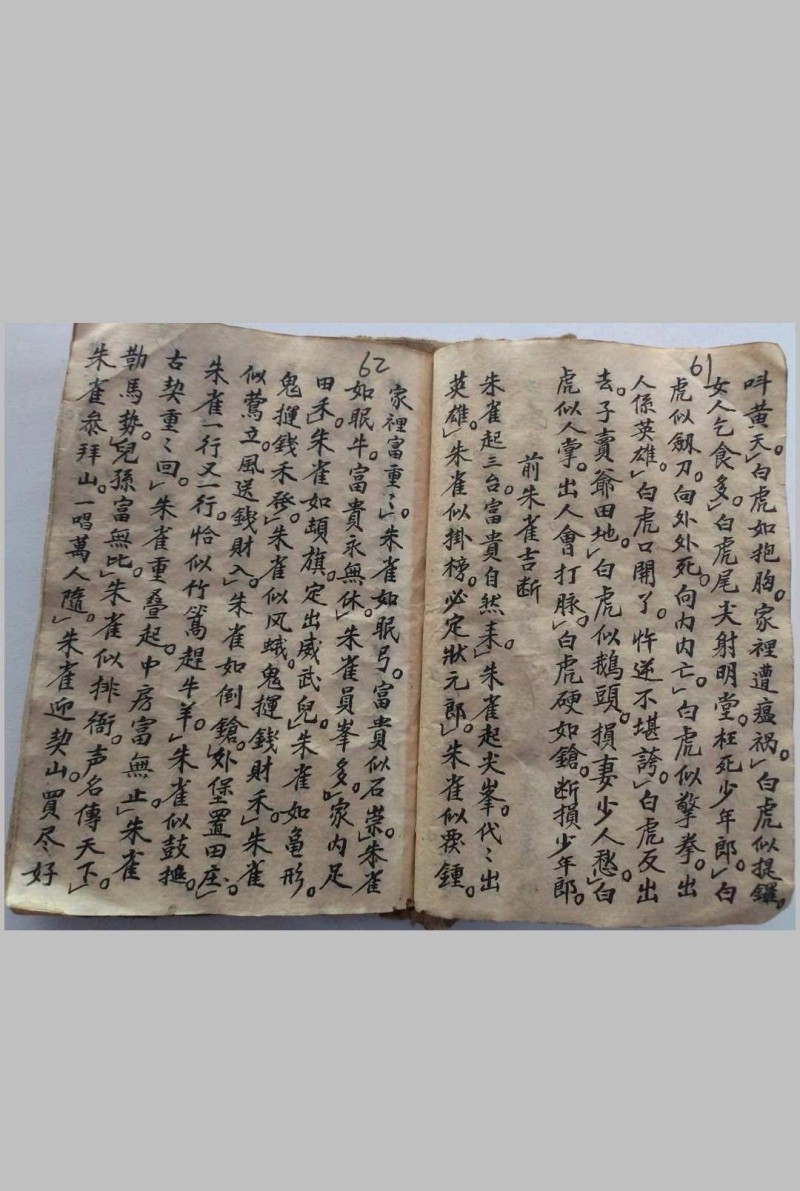 61
叫黄天。」白虎如抱胸。家裡遭瘟祸。」白虎似提鑼。
女人乞食多。」白虎尾尖射明堂。枉死少年郎。」白
虎似劔刀。向外外死。向内内亡」白虎似擎拳。出
人係英雄」白虎口開了。忤逆不堪誇。」白虎反出
去。子賣爺田地。」白虎似鵝頭。損妻少人愁。」白
虎似人掌。出人會打脉。」白虎硬如鎗。断損少年郎。
前朱雀吉断
朱雀起三台。富貴自然来」朱雀起尖峯。代〻出
英雄」朱雀似掛榜。必定狀元郎。」朱雀似覆鍾。
62
家裡富重〻」朱雀如眠弓。富貴似石崇。」朱雀
如眠牛。富貴永無休。」朱雀員峯多。」家内足
田禾」朱雀如頓旗。定出威武兒」朱雀如亀形。
鬼運錢禾發」朱雀似风蛾。鬼運錢財禾」朱雀
似鶯立。風送錢財入。」朱雀如倒鎗。」外堡置田庄。」
朱雀一行又一行。恰似竹篙趕牛羊。」朱雀似鼓搥。
古契重〻回。」朱雀重叠起。中房富無止」朱雀
勒馬勢。」兒孫富無比」朱雀似排衙。声名傳天下。」
朱雀叅拜山。一唱萬人隨。」朱雀迎契山。買尽好